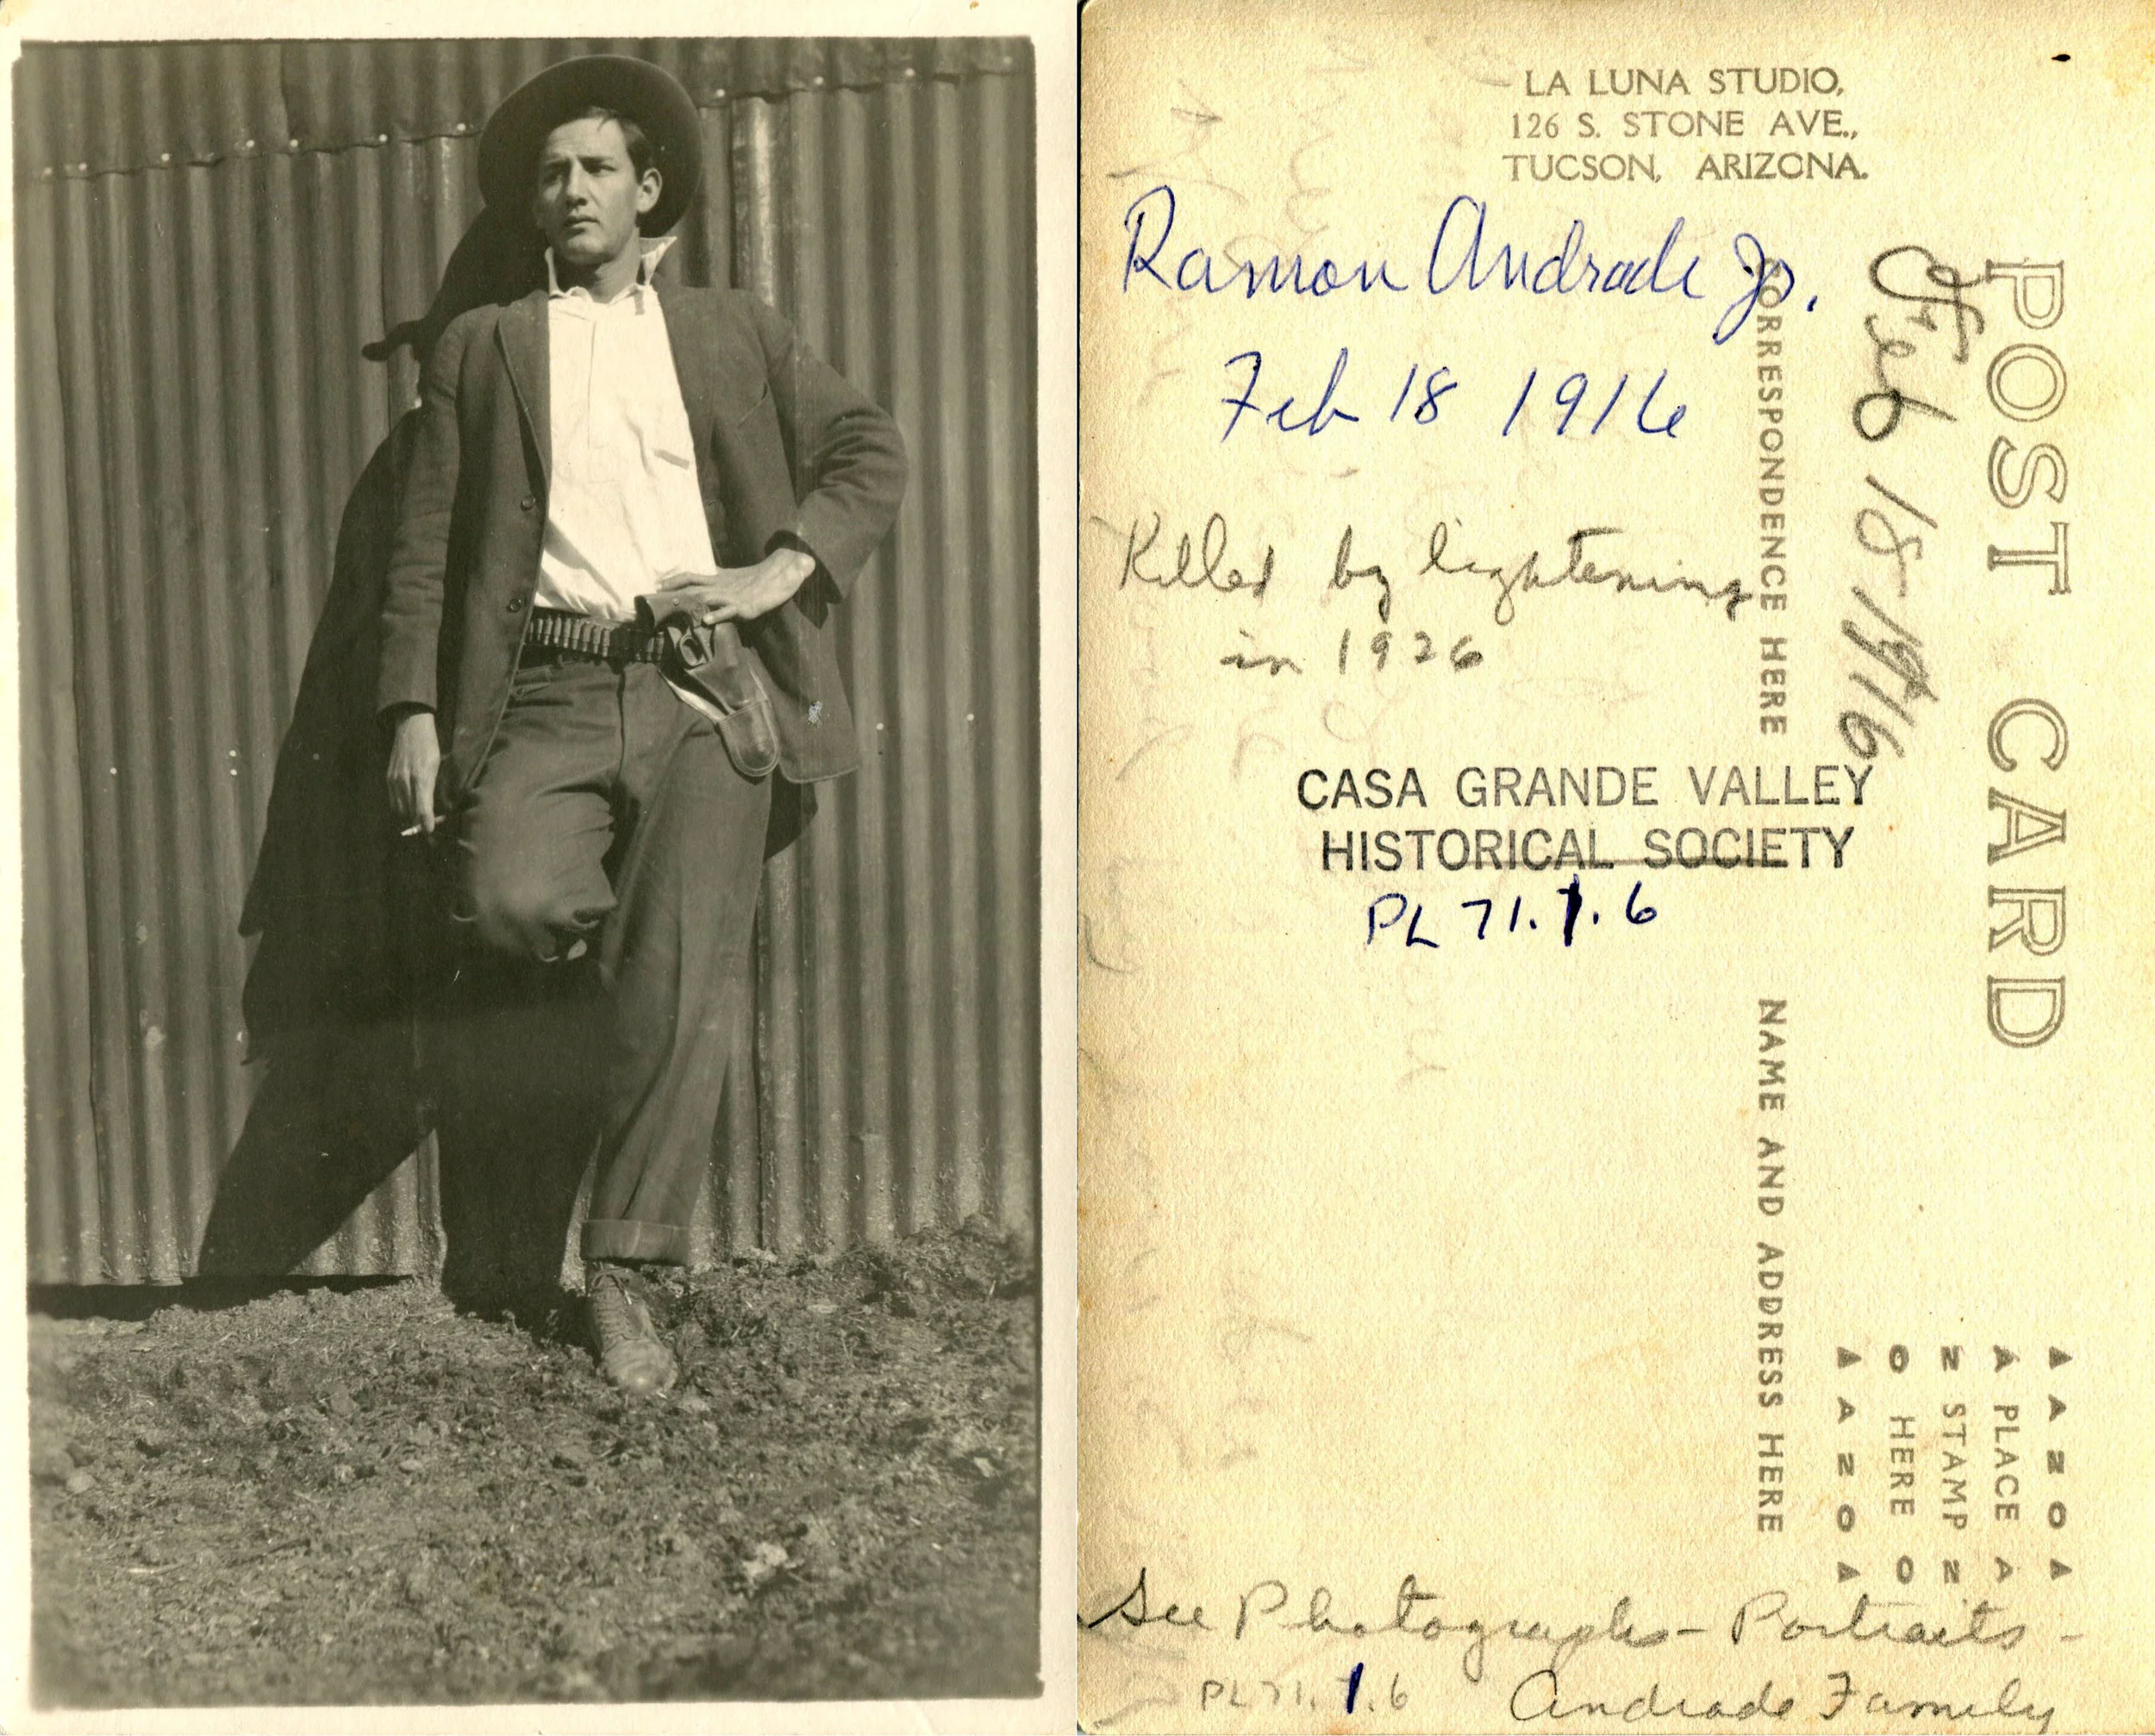 LA LUNA STUDIO,
126 S. STONE AVE.,
TUCSON, ARIZONA.
Ramon Andrade Jr.
Feb 18 1916
Killed by lightening
in 1926
CASA GRANDE VALLEY
HISTORICAL SOCIETY
PL 71.1.6
POST CARD
Feb 18-1916
CORRESPONDENCE HERE
NAME AND ADDRESS HERE
▲ A Z O ▲
A PLACE A
Z STAMP Z
O HERE O
▲ A Z O ▲
See Photographs - Portraits -
PL71.1.6 Andrade Family